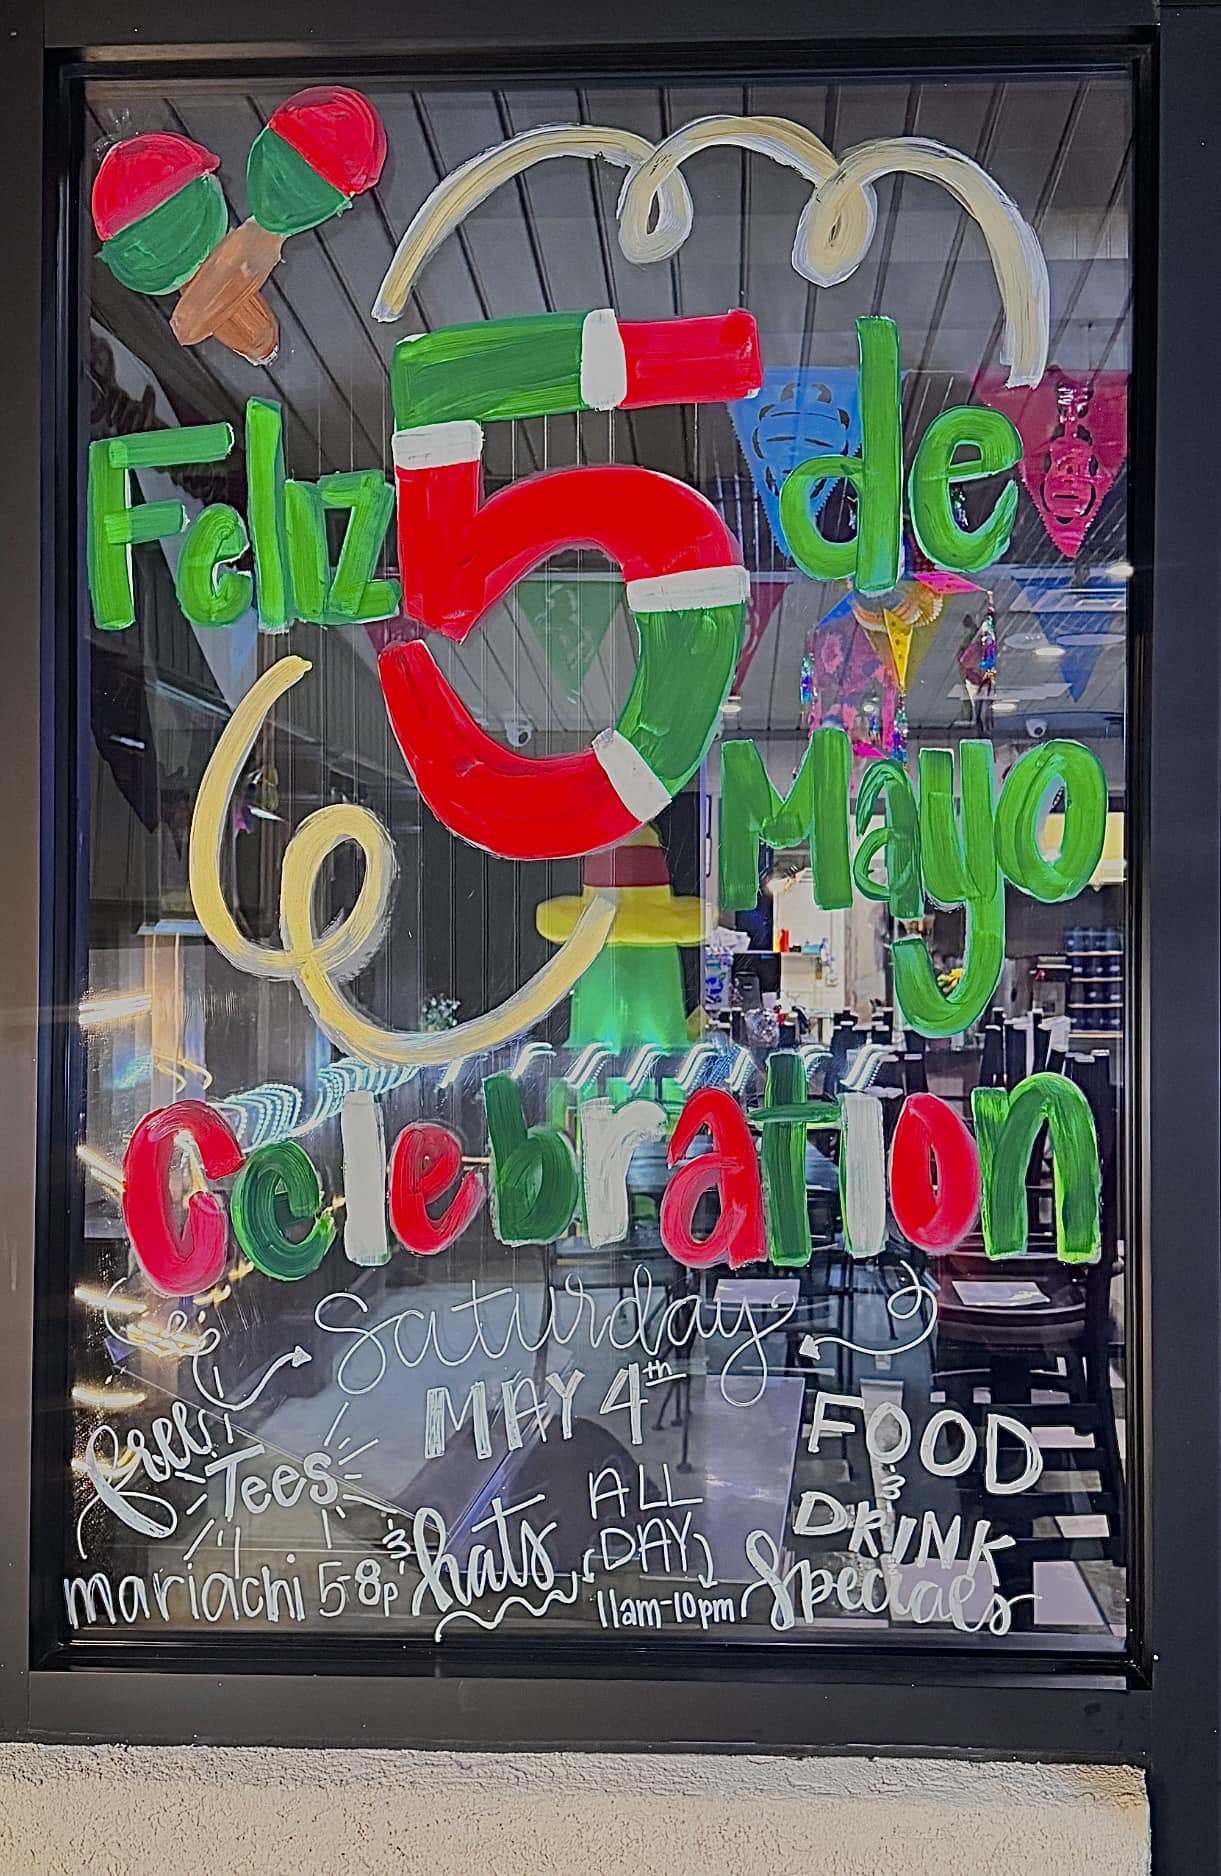 Feliz 5 de
Mayo
Celebration
Saturday
MAY 4th
free
Tees
& hats
mariachi 5-8p
ALL
DAY
11am-10pm
FOOD
&
DRINK
Specials